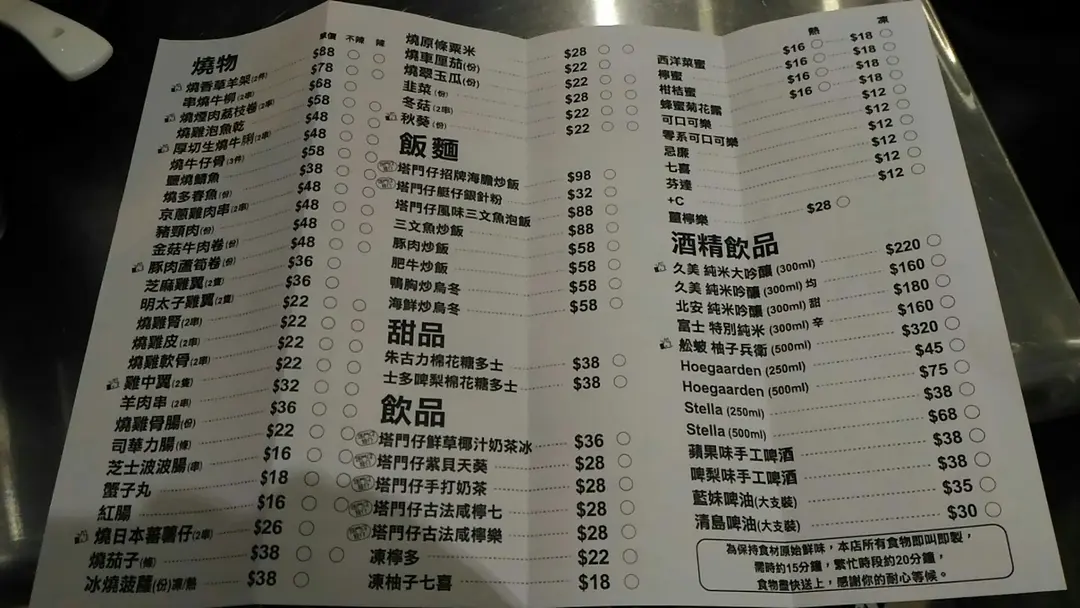 燒物 單價 不辣 辣
燒香草羊架(2件) $88
串燒牛柳(2串) $78
燒煙肉荔枝卷(2串) $68
燒雞泡魚乾 $58
厚切生燒牛脷(2串) $48
燒牛仔骨(3件) $48
鹽燒鯖魚 $58
燒多春魚(份) $38
京蔥雞肉串(2串) $48
豬頸肉(份) $48
金菇牛肉卷(份) $48
豚肉蘆筍卷(份) $48
芝麻雞翼(2隻) $36
明太子雞翼(2隻) $36
燒雞腎(2串) $22
燒雞皮(2串) $22
燒雞軟骨(2串) $22
雞中翼(2隻) $22
羊肉串(2串) $32
燒雞骨腸(份) $36
司華力腸(條) $22
芝士波波腸(串) $16
蟹子丸 $18
紅腸 $16
燒日本蕃薯仔(2串) $26
燒茄子(條) $38
冰燒菠蘿(份)凍/熱 $38
燒原條粟米 $28
燒車厘茄(份) $22
燒翠玉瓜(份) $22
韭菜(份) $28
冬菇(2串) $22
秋葵(份) $22
飯麵
塔門仔招牌海膽炒飯 $98
塔門仔艇仔銀針粉 $32
塔門仔風味三文魚泡飯 $88
三文魚炒飯 $88
豚肉炒飯 $58
肥牛炒飯 $58
鴨胸炒烏冬 $58
海鮮炒烏冬 $58
甜品
朱古力棉花糖多士 $38
士多啤梨棉花糖多士 $38
飲品
塔門仔鮮草椰汁奶茶冰 $36
塔門仔紫貝天葵 $28
塔門仔手打奶茶 $28
塔門仔古法咸檸七 $28
塔門仔古法咸檸樂 $28
凍檸多 $22
凍柚子七喜 $18
熱 凍
西洋菜蜜 $16 $18
檸蜜 $16 $18
柑桔蜜 $16 $18
蜂蜜菊花露 $16 $18
可口可樂 $12
零系可口可樂 $12
忌廉 $12
七喜 $12
芬達 $12
+C $12
薑檸樂 $28
酒精飲品
久美 純米大吟釀 (300ml) $220
久美 純米吟釀 (300ml) 均 $160
北安 純米吟釀 (300ml) 甜 $180
富士 特別純米 (300ml) 辛 $160
舩坡 柚子兵衛 (500ml) $320
Hoegaarden (250ml) $45
Hoegaarden (500ml) $75
Stella (250ml) $38
Stella (500ml) $68
蘋果味手工啤酒 $38
啤梨味手工啤酒 $38
藍妹啤油(大支裝) $35
清島啤油(大支裝) $30
為保持食材原始鮮味，本店所有食物即叫即製，
需時約15分鐘，繁忙時段約20分鐘，
食物盡快送上，感謝你的耐心等候。